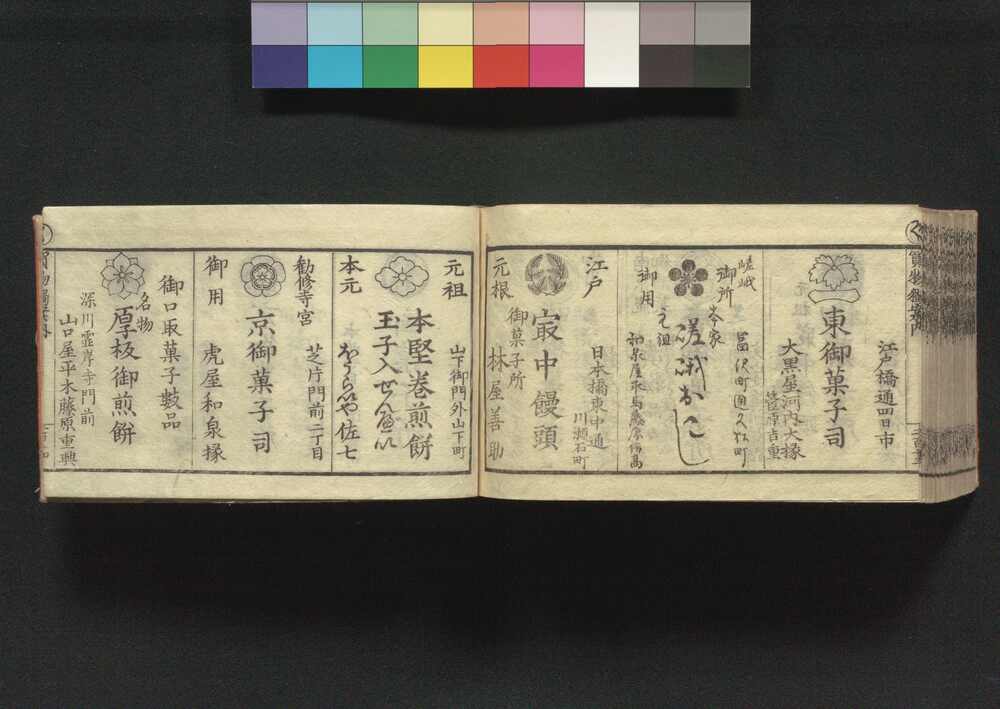 江戸橋通四日市
東御菓子司
大黒屋河内大掾
藤原吉重
嵯峨
御所
御用
冨沢町
元祖
嵯峨おこし
江戸
日本橋東中通
川瀬石町
㝡中饅頭
御菓子所
元根
林屋善助
元祖
山下御門外山下町
本堅巻煎餅
玉子入せんべい
本元
佐七
勧修寺宮
芝片門前二丁目
京御菓子司
御用
虎屋和泉掾
御口取菓子数品
名物
厚板御煎餅
深川霊岸寺門前
山口屋平本藤原重興